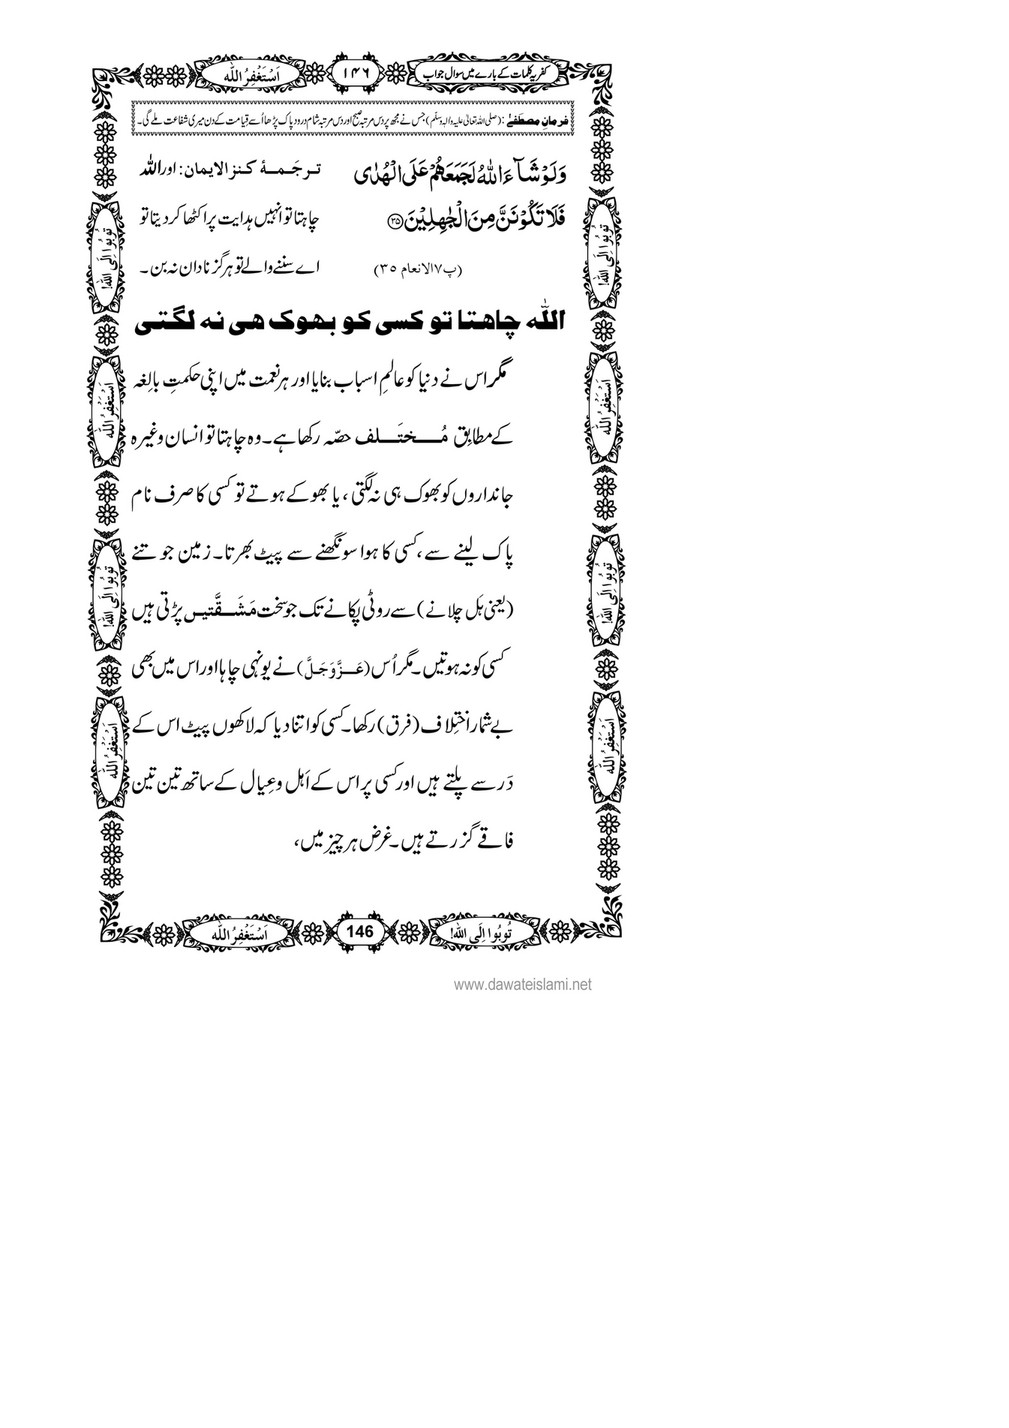 کفریہ کلمات کے بارے میں سوال جواب
۱۴۶
اَسْتَغْفِرُ اللّٰه
فرمانِ مصطفےٰ : (صلی اللہ تعالیٰ علیہ واٰلہ وسلّم) جس نے مجھ پر دس مرتبہ صبح اور دس مرتبہ شام درود پاک پڑھا اُسے قیامت کے دن میری شفاعت ملے گی۔
وَلَوْ شَآءَ اللّٰهُ لَجَمَعَهُمْ عَلَى الْهُدٰى
فَلَا تَكُوْنَنَّ مِنَ الْجٰهِلِیْنَ ۳۵
(پ۷الانعام ۳۵)
ترجَمۂ کنز الایمان: اور اللہ
چاہتا تو انہیں ہدایت پر اکٹھا کر دیتا تو
اے سننے والے تو ہر گز نادان نہ بن۔
اللّٰہ چاھتا تو کسی کو بھوک ھی نہ لگتی
مگر اس نے دنیا کو عالمِ اسباب بنایا اور ہر نعمت میں اپنی حکمتِ بالِغہ
کے مطابِق مُختَلف حصّہ رکھا ہے۔ وہ چاہتا تو انسان وغیرہ
جانداروں کو بھوک ہی نہ لگتی ، یا بھوکے ہوتے تو کسی کا صرف نام
پاک لینے سے ، کسی کا ہوا سونگھنے سے پیٹ بھرتا۔ زمین جوتنے
(یعنی ہَل چلانے) سے روٹی پکانے تک جو سخت مَشَقَّتیں پڑتی ہیں
کسی کو نہ ہوتیں۔ مگر اُس (عَزَّوَجَلَّ) نے یونہی چاہا اور اس میں بھی
بے شمار اختِلاف (فرق) رکھا۔ کسی کو اتنا دیا کہ لاکھوں پیٹ اس کے
دَر سے پلتے ہیں اور کسی پر اس کے اَہل وعِیال کے ساتھ تین تین
فاقے گزرتے ہیں۔ غرض ہر چیز میں،
تُوبُوا اِلَى اللّٰه!
اَسْتَغْفِرُ اللّٰه
تُوبُوا اِلَى اللّٰه!
اَسْتَغْفِرُ اللّٰه
تُوبُوا اِلَى اللّٰه!
اَسْتَغْفِرُ اللّٰه
تُوبُوا اِلَى اللّٰه!
اَسْتَغْفِرُ اللّٰه
تُوبُوا اِلَى اللّٰه!
146
اَسْتَغْفِرُ اللّٰه
www.dawateislami.net